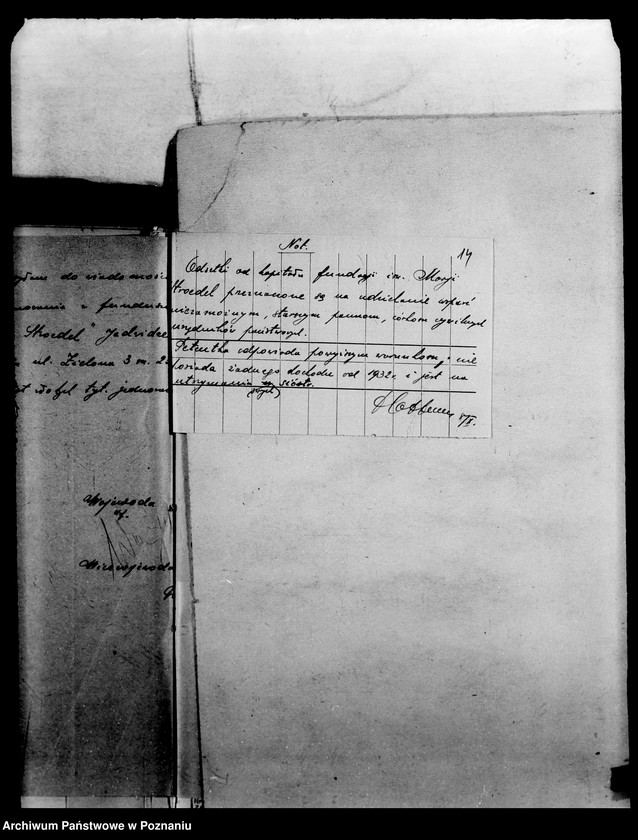 Not.
14
Odsetki od kapitału fundacji im. Marji
Stroedel przeznaczone są na udzielanie wsparć
niezamożnym, starszym pannom, córkom cywilnych
urzędników państwowych.
Petentka odpowiada powyższym warunkom, nie
posiada żadnego dochodu od 1932 r. i jest na
utrzymaniu siostr.
do wiadomości
Stroedel" Jadwidze
ul. Zielona 3 m. 2
tyt. jednoraz
Wojewoda
Wicewojewoda
Archiwum Państwowe w Poznaniu